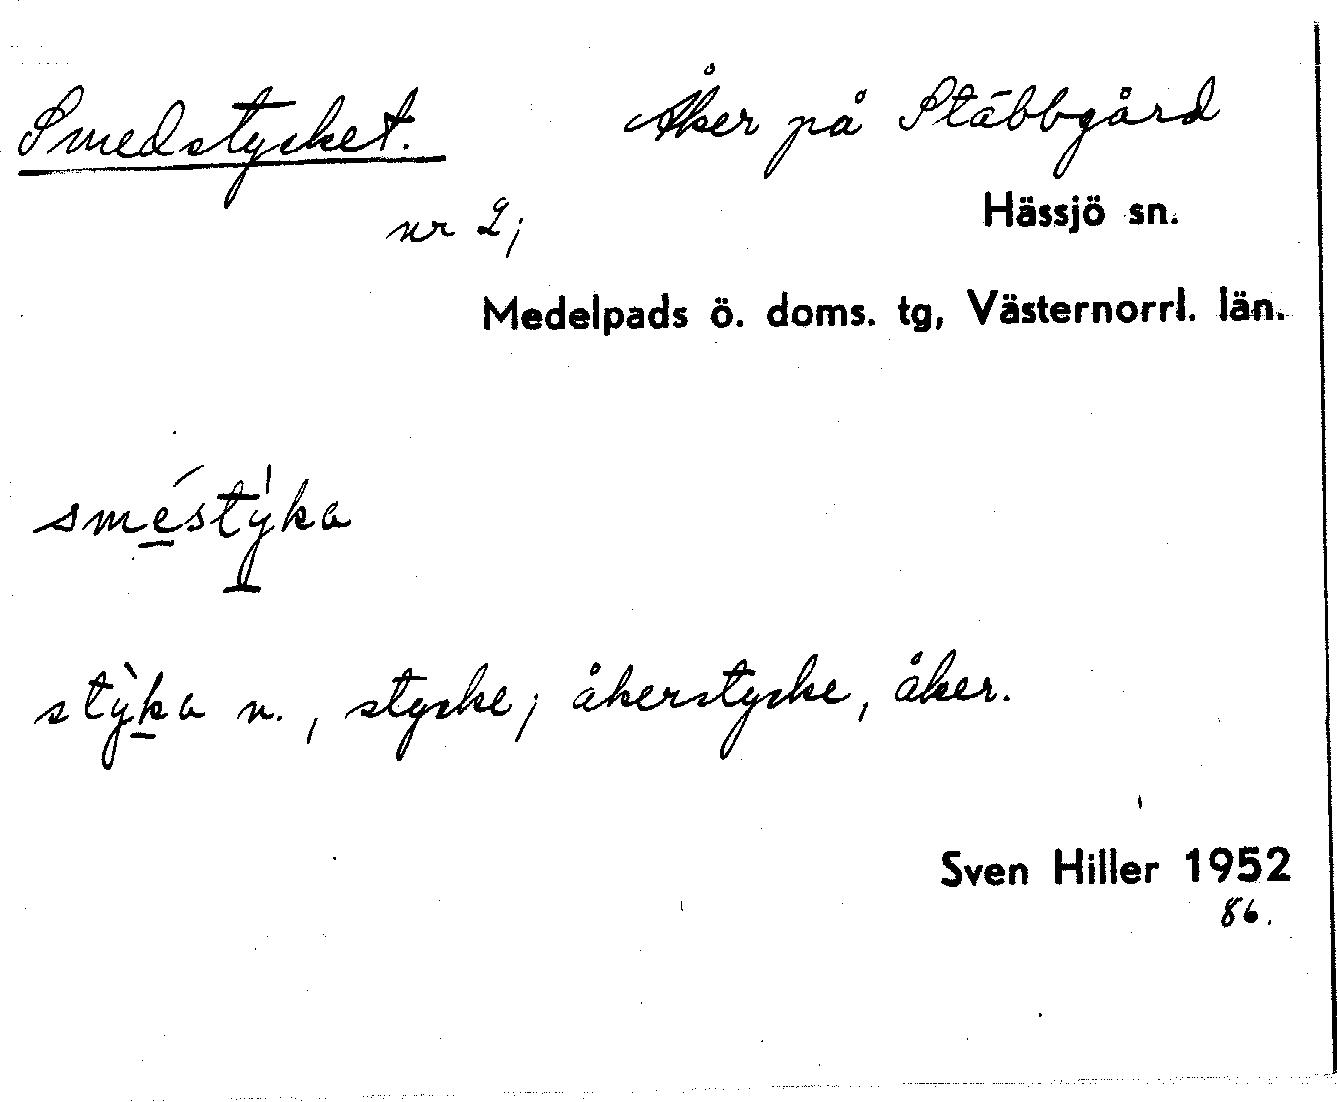 Smedstycket. Åker på Stäbbgård
nr 2; Hässjö sn.
Medelpads ö. doms. tg, Västernorrl. län.
sméstýka
stỳka n., stycke; åkerstycke, åker.
Sven Hiller 1952
86.